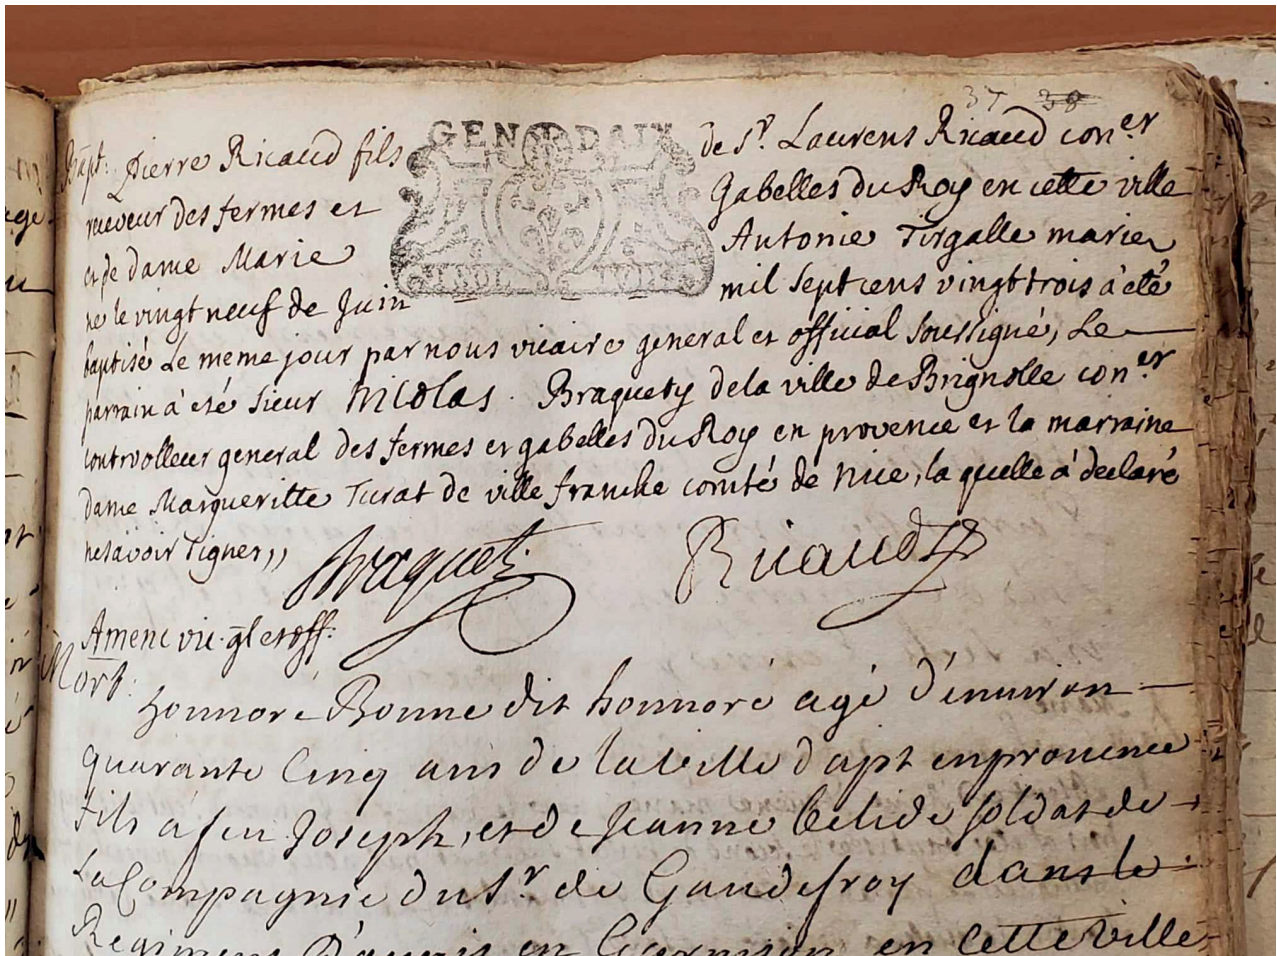 37 38
GEN DAIX
Bapt: Pierre Ricaud fils de Sr. Laurens Ricaud coner
receveur des fermes et Gabelles du Roy en cette ville
et de dame Marie Antonie Tirgalle mariez
ne le vingt neuf de Juin mil sept cens vingt trois à été
baptisé Le meme jour par nous vicaire general et official soussigné, Le
parrain à eté sieur Nicolas. Braquety de la ville de Brignolle coner
controlleur general des fermes et gabelles du Roy en provence et la marraine
dame Margueritte Turat de ville franche comté de Nice, la quelle à declaré
ne savoir signer,,
Braquet. Ricaud
Amenc vic. gl et off:
Mort:
honnore Bonne dit honnoré agé d'enuiron
quarante Cinq ans de la Ville d'apt en prouence
fils a feu Joseph, et de Jeanne belide soldat de
La Compagnie du Sr de Gaudefroy dans le
Regiment en Garnison en Cette ville